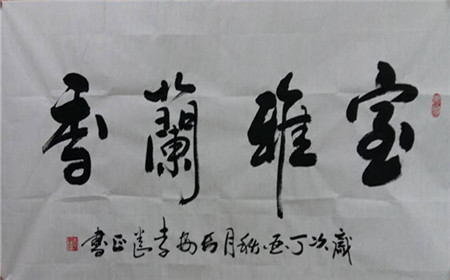 室雅蘭香
歲次丁酉秋月李正書